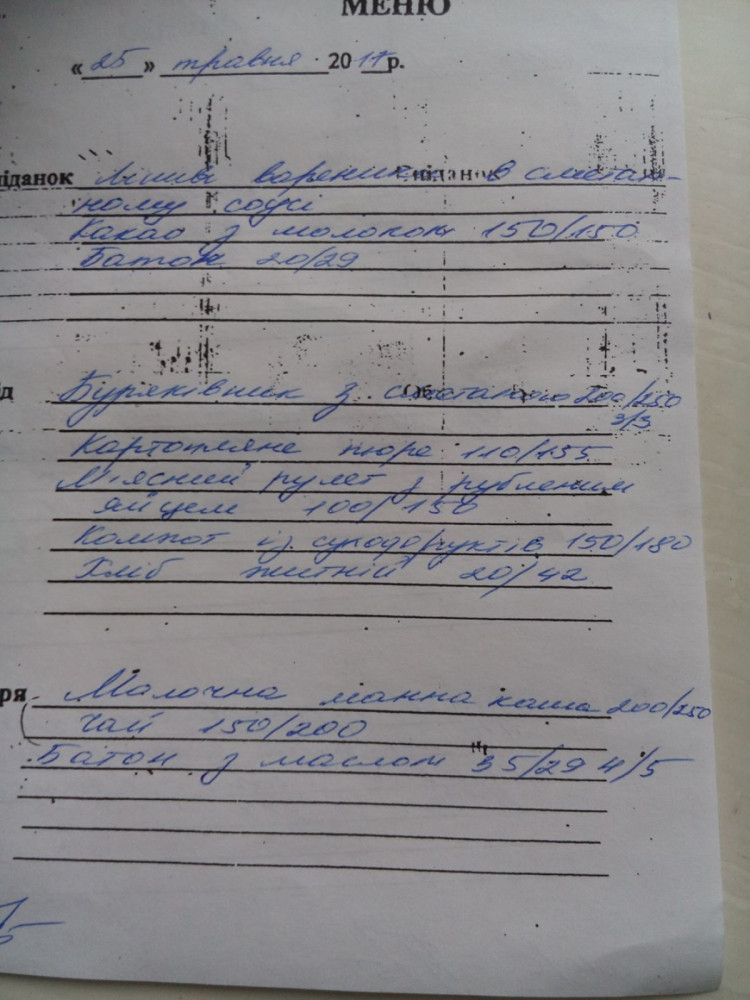 МЕНЮ
«25» травня 2017р.
іданок Ліниві вареники в сметан-
ному соусі
Какао з молоком 150/150
Батон 20/29
ід Буряківник з сметаною 200/250
3/3
Картопляне пюре 110/135
М'ясний рулет з рубленим
яйцем 100/150
Компот із сухофруктів 150/180
Хліб житній 20/42
ря Молочна манна каша 200/250
Чай 150/200
Батон з маслом 35/29 4/5